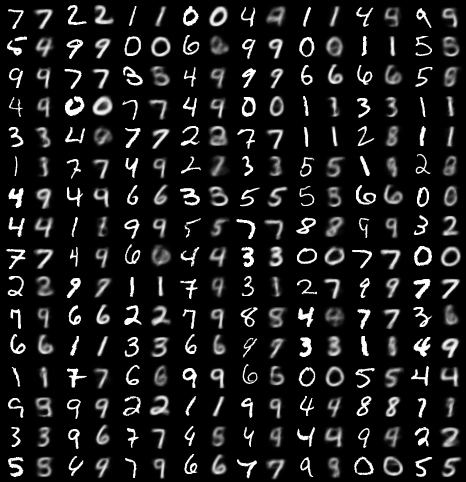 7 7 2 2 1 1 0 0 4 9 1 1 4 9 9 9
5 4 9 9 0 0 6 9 9 0 0 1 1 5 5
9 9 7 7 3 5 4 9 9 9 6 6 6 6 5 8
4 9 0 0 7 7 4 9 0 0 1 1 3 3 1 1
3 3 4 0 7 7 2 2 7 7 1 1 2 8 1 1
1 1 7 7 4 9 2 3 3 5 5 1 9 2 8
4 9 4 9 6 6 3 3 5 5 5 5 6 6 0 0
4 4 1 1 9 9 5 5 7 7 8 8 9 9 3 2
7 7 4 9 6 0 4 4 3 3 0 0 7 7 0 0
2 2 9 9 1 1 7 9 3 1 2 7 9 9 7 7
7 9 6 6 2 2 7 9 8 8 4 4 7 7 3 6
6 6 1 1 3 3 6 6 9 9 3 3 1 1 4 9
1 1 7 7 6 6 9 9 6 5 0 0 5 5 4 4
9 9 9 9 2 2 1 1 9 9 4 4 8 8 7 1
3 3 9 6 7 7 4 5 4 9 4 4 9 9 2 2
5 5 4 9 7 9 6 6 7 7 9 9 0 0 5 5